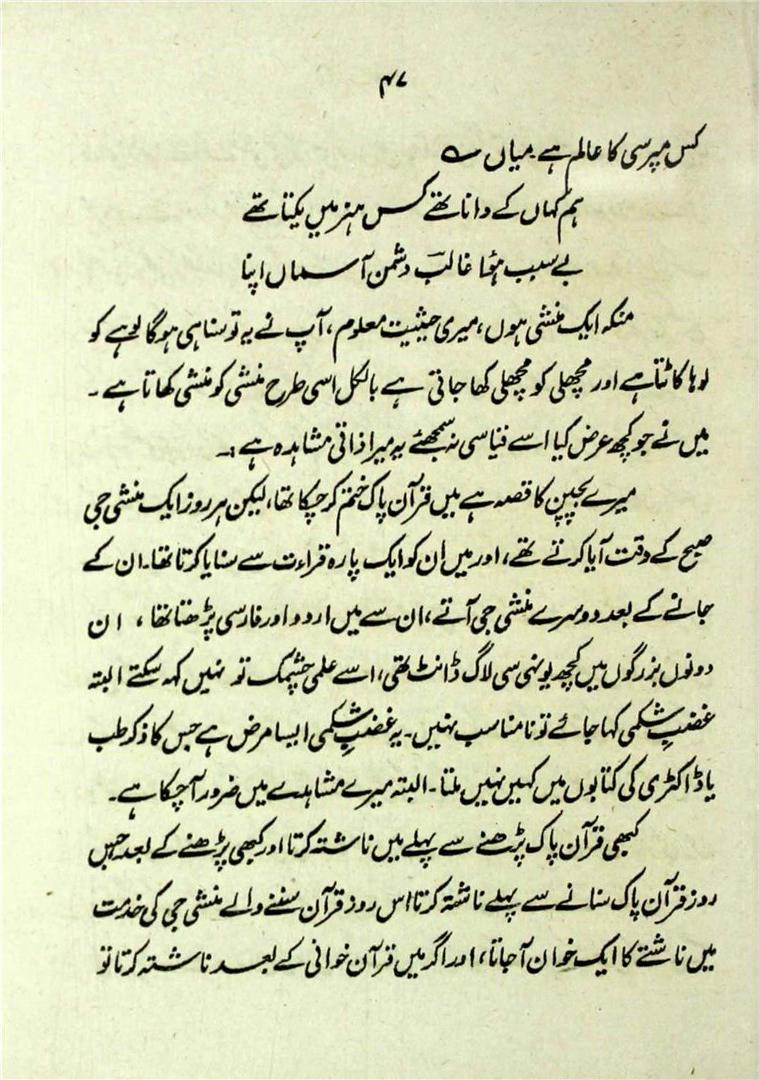 ۴۷
کس مپرسی کا عالم ہے۔ میاں ؎
ہم کہاں کے دانا تھے کس ہنر میں یکتا تھے
بے سبب ہوٗا غالبؔ دشمن آسماں اپنا
منکہ ایک منشی ہوں، میری حیثیت معلوم، آپ نے یہ تو سنا ہی ہوگا لوہے کو
لوہا کاٹتا ہے اور مچھلی کو مچھلی کھا جاتی ہے بالکل اسی طرح منشی کو منشی کھاتا ہے۔
میں نے جو کچھ عرض کیا اسے قیاسی نہ سمجھئے یہ میرا ذاتی مشاہدہ ہے :۔
میرے بچپن کا قصہ ہے میں قرآن پاک ختم کر چکا تھا، لیکن ہر روز ایک منشی جی
صبح کے وقت آیا کرتے تھے، اور میں ان کو ایک پارہ قراءت سے سنایا کرتا تھا۔ ان کے
جانے کے بعد دوسرے منشی جی آتے، ان سے میں اردو اور فارسی پڑھتا تھا، ان
دونوں بزرگوں میں کچھ یونہی سی لاگ ڈانٹ تھی، اسے علمی چشمک تو نہیں کہہ سکتے البتہ
غضبِ شکمی کہا جائے تو نامناسب نہیں۔ یہ غضبِ شکمی ایسا مرض ہے جس کا ذکر طب
یا ڈاکٹری کی کتابوں میں کہیں نہیں ملتا۔ البتہ میرے مشاہدے میں ضرور آچکا ہے۔
کبھی قرآن پاک پڑھنے سے پہلے میں ناشتہ کرتا اور کبھی پڑھنے کے بعد جس
روز قرآن پاک سنانے سے پہلے ناشتہ کرتا اس روز قرآن سننے والے منشی جی کی خدمت
میں ناشتے کا ایک خوان آجاتا، اور اگر میں قرآن خوانی کے بعد ناشتہ کرتا تو